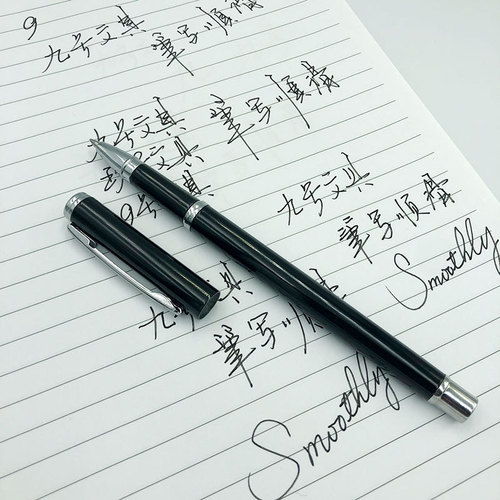 9
九号文具 書写顺滑
九号文具 書写顺滑
号文具
9号 具
九号文具
書写顺滑
Smoothly
九号 具
書写顺滑
Smoothly